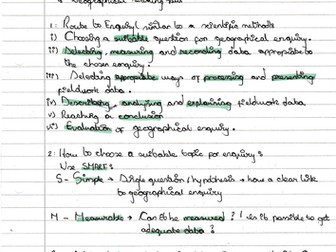 1: Route to Enquiry | similar to a scientific method:
i) Choosing a suitable question for geographical enquiry.
ii) Selecting, measuring and recording data appropriate to
the chosen enquiry.
iii) Selecting appropriate ways of processing and presenting
fieldwork data.
iv) Describing, analysing and explaining fieldwork data.
v) Reaching a conclusion
vi) Evaluation of geographical enquiry.
2: How to choose a suitable topic for enquiry:
Use SMART:
S - Simple → Single question / hypothesis → have a clear link
to geographical enquiry
M - Measurable → Can it be measured? Is it possible to get
adequate data?